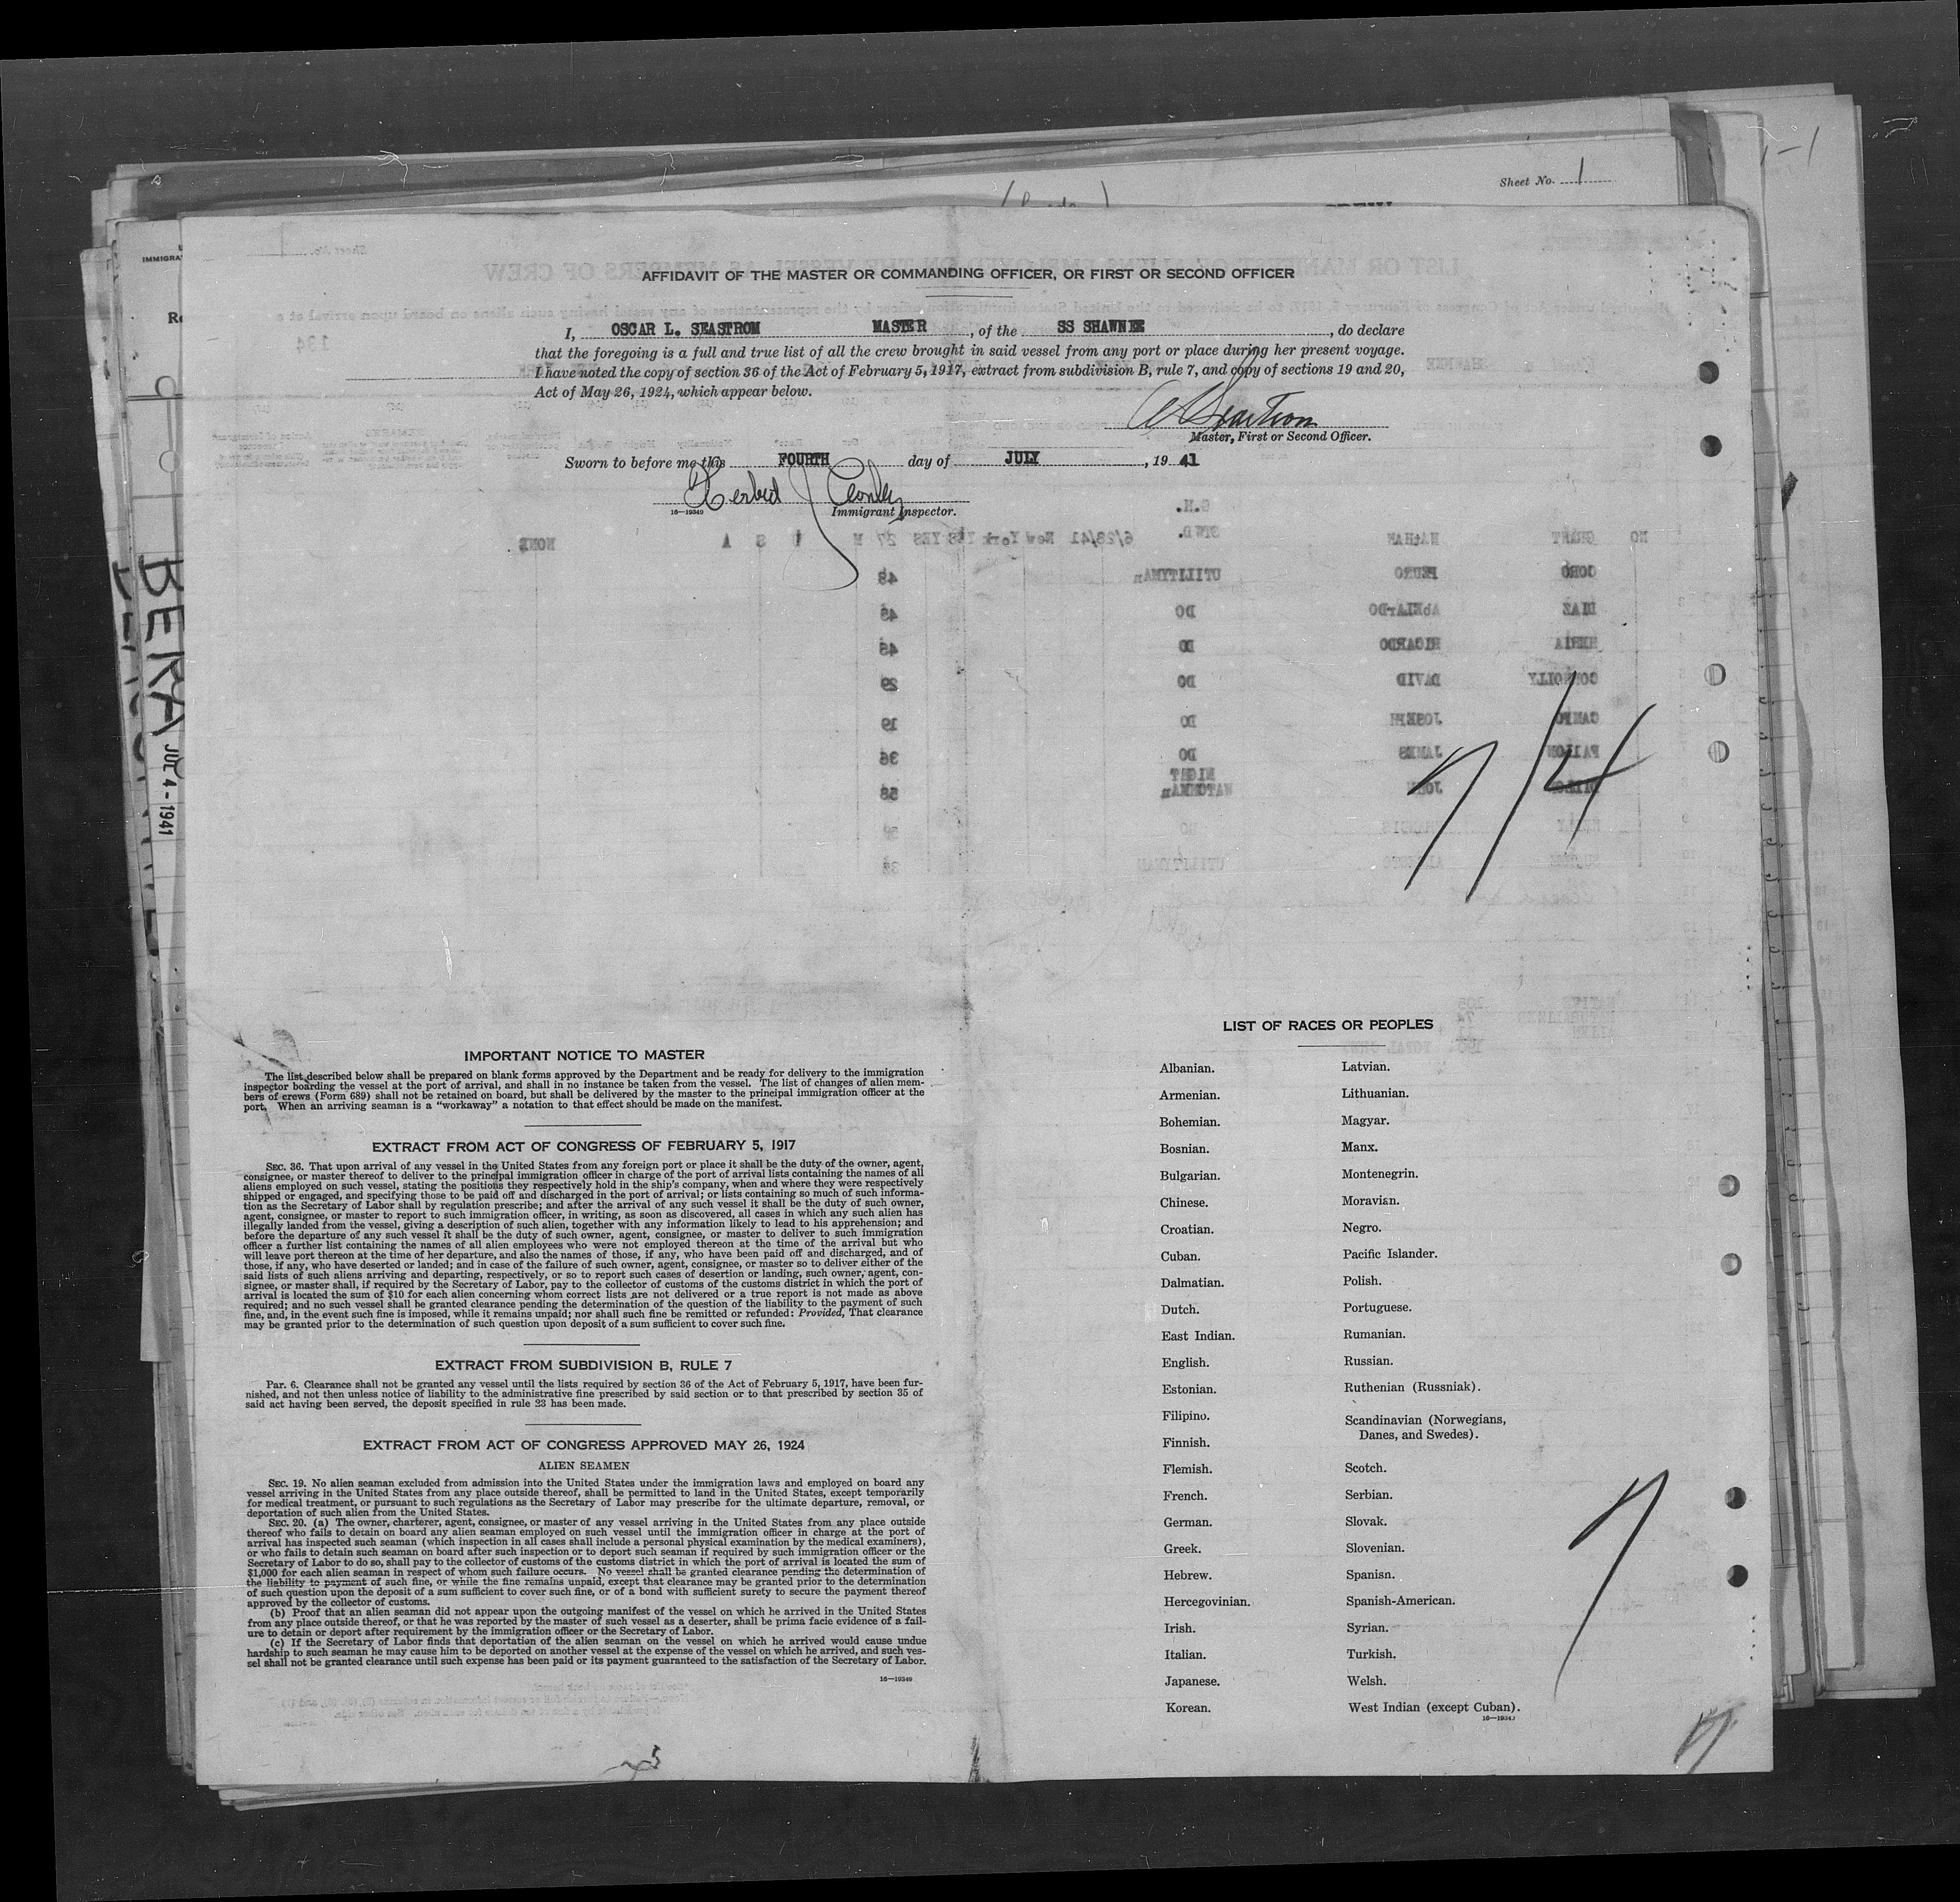 Sheet No. 1
AFFIDAVIT OF THE MASTER OR COMMANDING OFFICER, OR FIRST OR SECOND OFFICER
I, OSCAR L. SEASTROM MASTER, of the SS SHAWNEE, do declare
that the foregoing is a full and true list of all the crew brought in said vessel from any port or place during her present voyage.
I have noted the copy of section 36 of the Act of February 5, 1917, extract from subdivision B, rule 7, and copy of sections 19 and 20,
Act of May 26, 1924, which appear below.
Master, First or Second Officer.
Sworn to before me this FOURTH day of JULY, 19 41
Immigrant Inspector.
16—19349
BERA
JUL 4 - 1941
7/4
IMPORTANT NOTICE TO MASTER
The list described below shall be prepared on blank forms approved by the Department and be ready for delivery to the immigration
inspector boarding the vessel at the port of arrival, and shall in no instance be taken from the vessel. The list of changes of alien mem-
bers of crews (Form 689) shall not be retained on board, but shall be delivered by the master to the principal immigration officer at the
port. When an arriving seaman is a "workaway" a notation to that effect should be made on the manifest.
EXTRACT FROM ACT OF CONGRESS OF FEBRUARY 5, 1917
SEC. 36. That upon arrival of any vessel in the United States from any foreign port or place it shall be the duty of the owner, agent,
consignee, or master thereof to deliver to the principal immigration officer in charge of the port of arrival lists containing the names of all
aliens employed on such vessel, stating the positions they respectively hold in the ship's company, when and where they were respectively
shipped or engaged, and specifying those to be paid off and discharged in the port of arrival; or lists containing so much of such informa-
tion as the Secretary of Labor shall by regulation prescribe; and after the arrival of any such vessel it shall be the duty of such owner,
agent, consignee, or master to report to such immigration officer, in writing, as soon as discovered, all cases in which any such alien has
illegally landed from the vessel, giving a description of such alien, together with any information likely to lead to his apprehension; and
before the departure of any such vessel it shall be the duty of such owner, agent, consignee, or master to deliver to such immigration
officer a further list containing the names of all alien employees who were not employed thereon at the time of the arrival but who
will leave port thereon at the time of her departure, and also the names of those, if any, who have been paid off and discharged, and of
those, if any, who have deserted or landed; and in case of the failure of such owner, agent, consignee, or master so to deliver either of the
said lists of such aliens arriving and departing, respectively, or so to report such cases of desertion or landing, such owner, agent, con-
signee, or master shall, if required by the Secretary of Labor, pay to the collector of customs of the customs district in which the port of
arrival is located the sum of $10 for each alien concerning whom correct lists are not delivered or a true report is not made as above
required; and no such vessel shall be granted clearance pending the determination of the question of the liability to the payment of such
fine, and, in the event such fine is imposed, while it remains unpaid; nor shall such fine be remitted or refunded: Provided, That clearance
may be granted prior to the determination of such question upon deposit of a sum sufficient to cover such fine.
EXTRACT FROM SUBDIVISION B, RULE 7
Par. 6. Clearance shall not be granted any vessel until the lists required by section 36 of the Act of February 5, 1917, have been fur-
nished, and not then unless notice of liability to the administrative fine prescribed by said section or to that prescribed by section 35 of
said act having been served, the deposit specified in rule 23 has been made.
EXTRACT FROM ACT OF CONGRESS APPROVED MAY 26, 1924
ALIEN SEAMEN
SEC. 19. No alien seaman excluded from admission into the United States under the immigration laws and employed on board any
vessel arriving in the United States from any place outside thereof, shall be permitted to land in the United States, except temporarily
for medical treatment, or pursuant to such regulations as the Secretary of Labor may prescribe for the ultimate departure, removal, or
deportation of such alien from the United States.
SEC. 20. (a) The owner, charterer, agent, consignee, or master of any vessel arriving in the United States from any place outside
thereof who fails to detain on board any alien seaman employed on such vessel until the immigration officer in charge at the port of
arrival has inspected such seaman (which inspection in all cases shall include a personal physical examination by the medical examiners),
or who fails to detain such seaman on board after such inspection or to deport such seaman if required by such immigration officer or the
Secretary of Labor to do so, shall pay to the collector of customs of the customs district in which the port of arrival is located the sum of
$1,000 for each alien seaman in respect of whom such failure occurs. No vessel shall be granted clearance pending the determination of
the liability to payment of such fine, or while the fine remains unpaid, except that clearance may be granted prior to the determination
of such question upon the deposit of a sum sufficient to cover such fine, or of a bond with sufficient surety to secure the payment thereof
approved by the collector of customs.
(b) Proof that an alien seaman did not appear upon the outgoing manifest of the vessel on which he arrived in the United States
from any place outside thereof, or that he was reported by the master of such vessel as a deserter, shall be prima facie evidence of a fail-
ure to detain or deport after requirement by the immigration officer or the Secretary of Labor.
(c) If the Secretary of Labor finds that deportation of the alien seaman on the vessel on which he arrived would cause undue
hardship to such seaman he may cause him to be deported on another vessel at the expense of the vessel on which he arrived, and such ves-
sel shall not be granted clearance until such expense has been paid or its payment guaranteed to the satisfaction of the Secretary of Labor.
16—19349
LIST OF RACES OR PEOPLES
Albanian.
Armenian.
Bohemian.
Bosnian.
Bulgarian.
Chinese.
Croatian.
Cuban.
Dalmatian.
Dutch.
East Indian.
English.
Estonian.
Filipino.
Finnish.
Flemish.
French.
German.
Greek.
Hebrew.
Hercegovinian.
Irish.
Italian.
Japanese.
Korean.
Latvian.
Lithuanian.
Magyar.
Manx.
Montenegrin.
Moravian.
Negro.
Pacific Islander.
Polish.
Portuguese.
Rumanian.
Russian.
Ruthenian (Russniak).
Scandinavian (Norwegians,
Danes, and Swedes).
Scotch.
Serbian.
Slovak.
Slovenian.
Spanish.
Spanish-American.
Syrian.
Turkish.
Welsh.
West Indian (except Cuban).